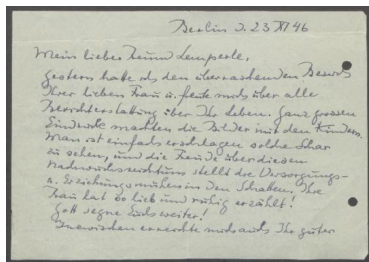 Berlin d. 23 XI 46
Mein lieber Freund Lemperle.
Gestern hatte ich den überraschenden Besuch
Ihrer lieben Frau u. freute mich über alle
Berichterstattung über Ihr Leben. Ganz grossen
Eindruck machten die Bilder mit den Kindern.
Man ist einfach erschlagen solche Schar
zu sehen, und die Freude über diesen
stellt die Versorgungs-
u. Erziehungsmühen in den Schatten. Ihre
Frau hat so lieb und ruhig erzählt!
Gott segne Euch weiter!
Inzwischen erreichte mich auch Ihr guter